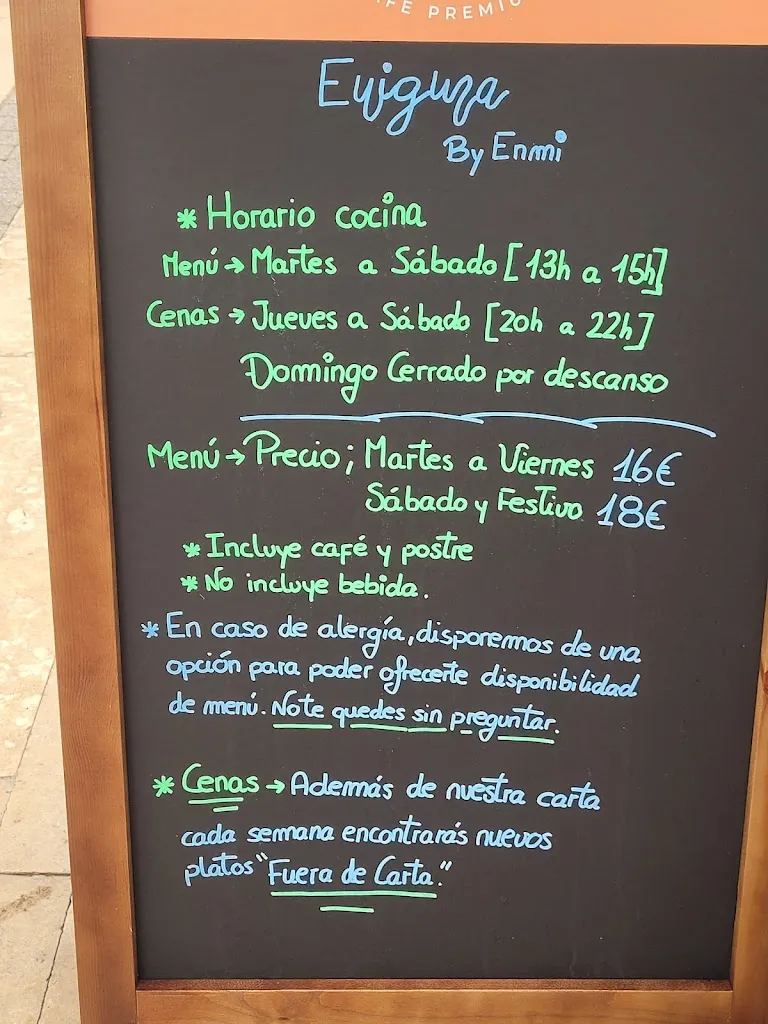 FE PREMIU
By Enmi
* Horario cocina
Menú → Martes a Sábado [13h a 15h]
Cenas → Jueves a Sábado [20h a 22h]
Domingo Cerrado por descanso
Menú → Precio; Martes a Viernes 16€
Sábado y Festivo 18€
* Incluye café y postre
* No incluye bebida.
* En caso de alergía, disporemos de una
opción para poder ofrecerte disponibilidad
de menú. No te quedes sin preguntar.
* Cenas → Además de nuestra carta
cada semana encontrarás nuevos
platos "Fuera de Carta."